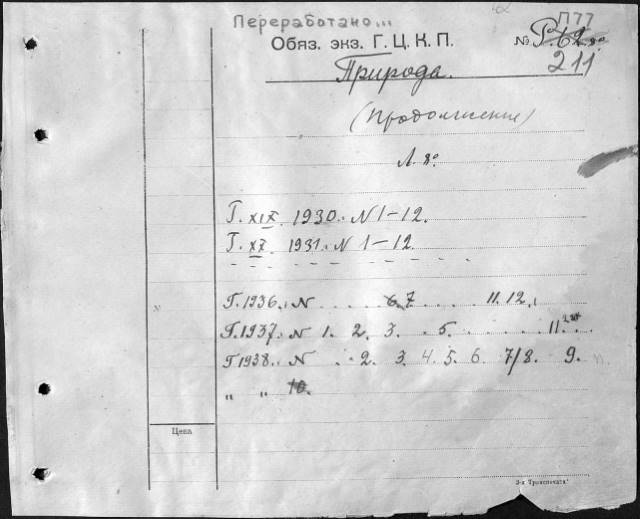 Переработано...
П77
Обяз. экз. Г. Ц. К. П. № Р.62 8º
211
Природа.
(Продолжение)
Л. 8º
Г. XIX. 1930. N 1–12.
Г. XX. 1931. N 1–12.
Г. 1936. N . . . . 6. 7 . . . . 11. 12.
Г. 1937. N 1. 2. 3. . 5. . . . . . 11. . .
Г. 1938. N . . 2. 3. 4. 5. 6. 7/8. 9.
„ „ 10.
N
Цена
3-я Транспечать